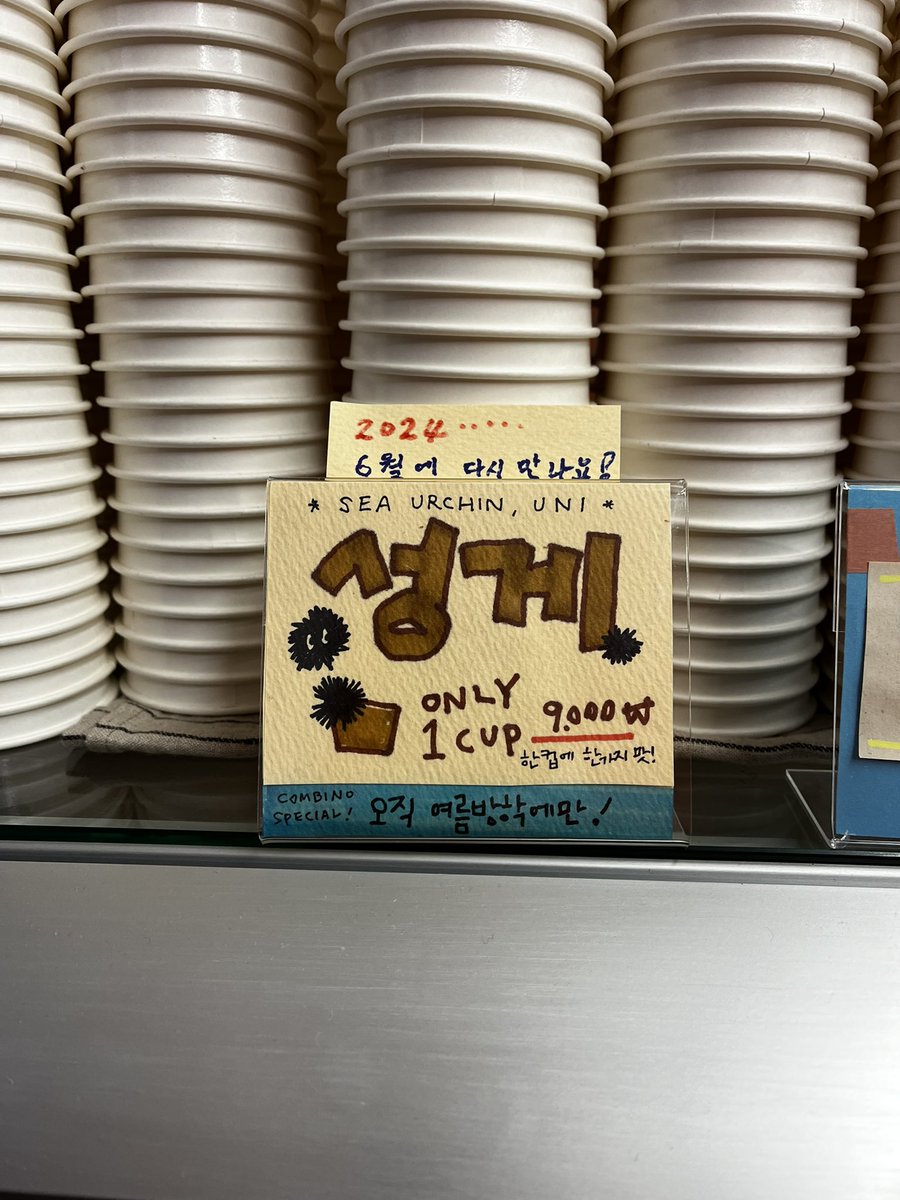 2024 .....
6월에 다시 만나요!
* SEA URCHIN, UNI *
성게
ONLY
1 CUP 9.000₩
한컵에 한가지 맛!
COMBINO
SPECIAL! 오직 여름방학에만!